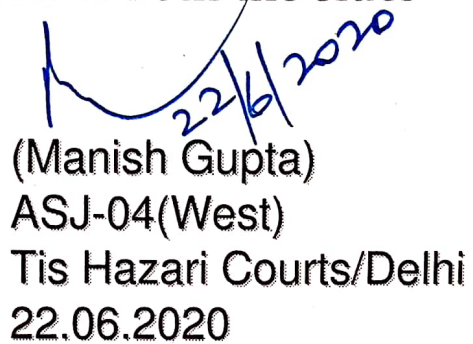 22/6/2020
(Manish Gupta)
ASJ-04(West)
Tis Hazari Courts/Delhi
22.06.2020